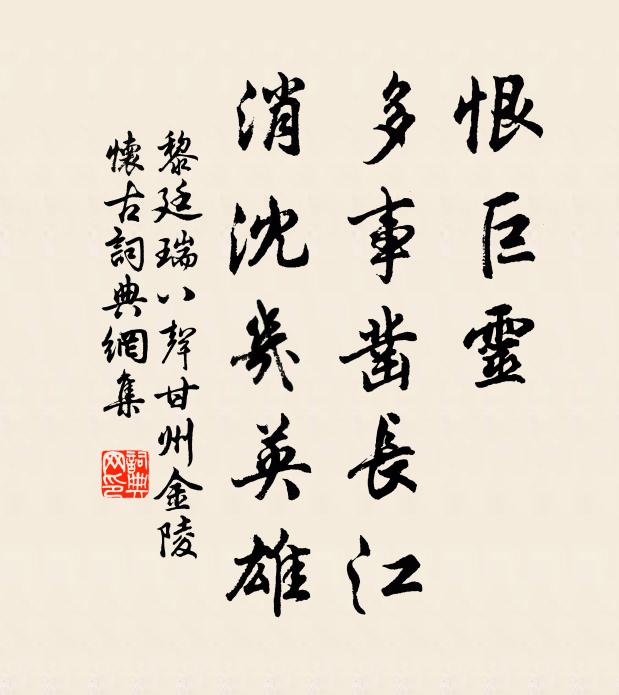 恨巨靈
多事鑿長江
消沈幾英雄
黎廷瑞八聲甘州金陵
懷古詞典網集
詞典網印